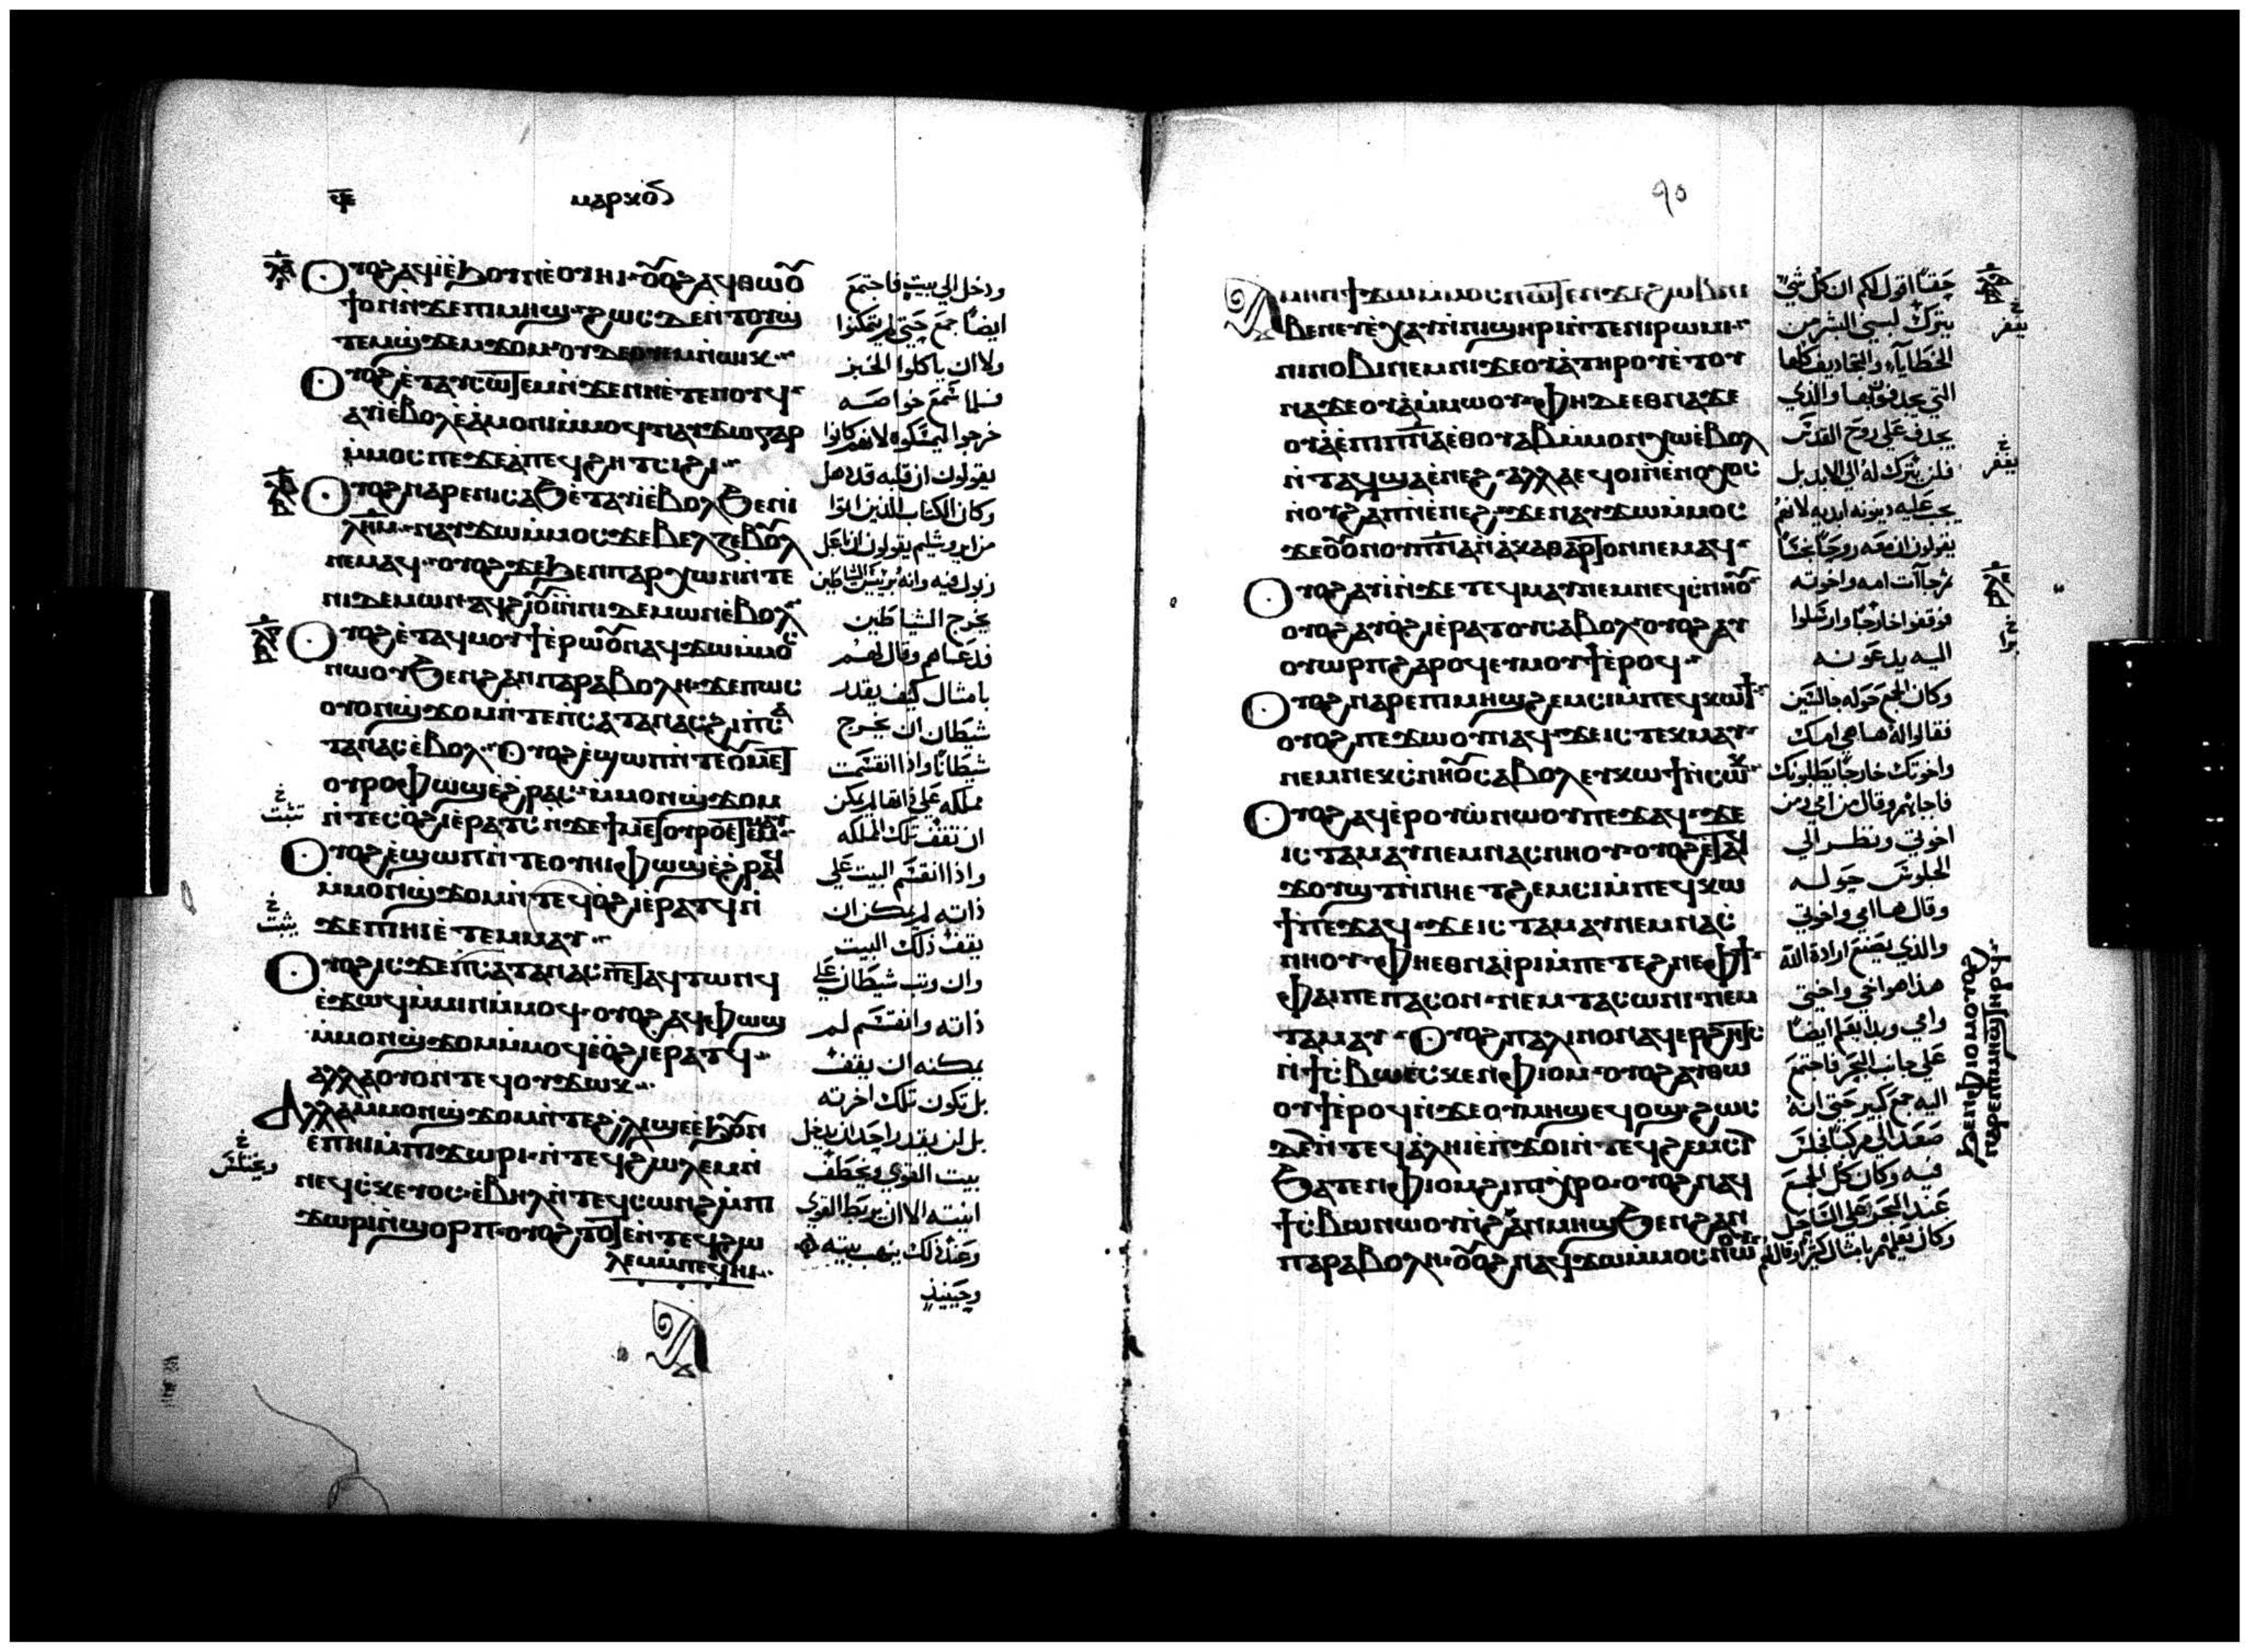 ⲙⲁⲣⲕⲟⲥ
ⲟⲩⲟϩ ⲁϥⲓ ⲉϧⲟⲩⲛ ⲉⲟⲩⲏⲓ ⲟⲩⲟϩ ⲁϥⲑⲱⲟⲩ
ϯ ⲟⲛ ⲛϫⲉ ⲡⲓⲙⲏϣ ϩⲱⲥ ⲇⲉ ⲛⲧⲟⲩϣ
ⲧⲉⲙϣϫⲉⲙϫⲟⲙ ⲟⲩⲇⲉ ⲟⲩⲉⲙ ⲛⲱⲓⲕ
ⲟⲩⲟϩ ⲉⲧⲁⲩⲥⲱⲧⲉⲙ ⲛϫⲉ ⲛⲏⲉⲧⲉⲛⲟⲩϥ
ⲁⲩⲓ ⲉⲃⲟⲗ ⲉⲁⲙⲟⲛⲓ ⲙⲙⲟϥ ⲛⲁⲩϫⲱ ⲅⲁⲣ
ⲙⲙⲟⲥ ⲡⲉ ϫⲉ ⲁⲡⲉϥϩⲏⲧ ⲥⲓϩⲓ
ⲟⲩⲟϩ ⲛⲁⲣⲉ ⲛⲓⲥⲁϧ ⲉⲧⲁⲩⲓ ⲉⲃⲟⲗ ϧⲉⲛ ⲓ
ⲗⲏⲙ ⲛⲁⲩϫⲱ ⲙⲙⲟⲥ ϫⲉ ⲃⲉⲗⲍⲉⲃⲟⲩⲗ
ⲛⲉⲙⲁϥ ⲟⲩⲟϩ ϫⲉ ϧⲉⲛ ⲡⲁⲣⲭⲱⲛ ⲛⲧⲉ
ⲛⲓⲇⲉⲙⲱⲛ ⲁϥϩⲓⲟⲩⲓ ⲛⲛⲓⲇⲉⲙⲱⲛ ⲉⲃⲟⲗ
ⲟⲩⲟϩ ⲉⲧⲁϥⲙⲟⲩϯ ⲉⲣⲱⲟⲩ ⲛⲁϥϫⲱ ⲙⲙⲟⲥ
ⲛⲱⲟⲩ ϧⲉⲛ ϩⲁⲛⲡⲁⲣⲁⲃⲟⲗⲏ ϫⲉ ⲡⲱⲥ
ⲟⲩⲟⲛϣϫⲟⲙ ⲛⲧⲉ ⲡⲥⲁⲧⲁⲛⲁⲥ ϩⲓ ⲡⲥⲁ
ⲧⲁⲛⲁⲥ ⲉⲃⲟⲗ ⲟⲩⲟϩ ⲉϣⲱⲡ ⲛⲧⲉ ⲟⲩⲙⲉⲧ
ⲟⲩⲣⲟ ⲫⲱϣ ⲉϩⲣⲁⲥ ⲙⲙⲟⲛϣϫⲟⲙ
ⲛⲧⲉⲥⲟϩⲓ ⲉⲣⲁⲧⲥ ⲛϫⲉ ϯⲙⲉⲧⲟⲩⲣⲟ ⲉⲧⲉⲙⲙⲁⲩ
ⲟⲩⲟϩ ⲉϣⲱⲡ ⲛⲧⲉ ⲟⲩⲏⲓ ⲫⲱϣ ⲉϩⲣⲁϥ
ⲙⲙⲟⲛϣϫⲟⲙ ⲛⲧⲉϥⲟϩⲓ ⲉⲣⲁⲧϥ ⲛ
ϫⲉ ⲡⲓⲏⲓ ⲉⲧⲉⲙⲙⲁⲩ
ⲟⲩⲟϩ ⲓⲥϫⲉ ⲡⲥⲁⲧⲁⲛⲁⲥ ⲡⲉⲧⲁϥⲧⲱⲛϥ
ⲉϫⲱϥ ⲙⲙⲓⲛ ⲙⲙⲟϥ ⲟⲩⲟϩ ⲁϥⲫⲱϣ
ⲙⲙⲟⲛϣϫⲟⲙ ⲙⲙⲟϥ ⲉⲟϩⲓ ⲉⲣⲁⲧϥ
ⲁⲗⲗⲁ ⲟⲩⲟⲛⲧⲉϥ ⲟⲩϫⲱⲕ
ⲁⲗⲗⲁ ⲙⲙⲟⲛϣϫⲟⲙ ⲛⲧⲉ ϩⲗⲓ ϣⲉ ⲉϧⲟⲩⲛ
ⲉⲡⲏⲓ ⲙⲡⲓϫⲱⲣⲓ ⲛⲧⲉϥϩⲱⲗⲉⲙ ⲛ
ⲛⲉϥⲥⲕⲉⲩⲟⲥ ⲉⲃⲏⲗ ⲛⲧⲉϥⲥⲱⲛϩ ⲙⲡⲓ
ϫⲱⲣⲓ ⲛϣⲟⲣⲡ ⲟⲩⲟϩ ⲧⲟⲧⲉ ⲛⲧⲉϥϩⲱ
ⲗⲉⲙ ⲙⲡⲉϥⲏⲓ
ودخل الي بيت فاجتمع
ايضًا جمع حتي لم يتمكنوا
ولا ان ياكلوا الخبز
فلما سمع خواصه
خرجوا ليمسكوه لانهم كانوا
يقولون ان قلبه قد ذهل
وكان الكتاب الذين اتوا
من ايروشليم يقولون ان باعل
زبول فيه وانه برييس الشياطين
يخرج الشياطين
فدعاهم وقال لهم
بامثال كيف يقدر
شيطان ان يخرج
شيطانًا واذا انقسمت
مملكه علي ذاتها لم يمكن
ان تقف تلك المملكه
واذا انقسم البيت علي
ذاته لم يمكن ان
يقف ذلك البيت
وان وثب شيطان علي
ذاته وانقسم لم
يمكنه ان يقف
بل تكون تلك اخرته
بل لن يقدر احد ان يدخل
بيت القوي ويخطف
انيته الا ان يربط القوي
وعند ذلك ينهب بيته
وحينيذٍ
تثبت
يثبت
٩٠
ⲁⲙⲏⲛ ϯϫⲱ ⲙⲙⲟⲥ ⲛⲱⲧⲉⲛ ϫⲉ ϩⲱⲃ ⲛⲓ
ⲃⲉⲛ ⲉⲩⲉⲭⲁⲩ ⲛⲛⲓϣⲏⲣⲓ ⲛⲧⲉ ⲛⲓⲣⲱⲙⲓ
ⲛⲓⲛⲟⲃⲓ ⲛⲉⲙ ⲛⲓϫⲉⲟⲩⲁ ⲧⲏⲣⲟⲩ ⲉⲧⲟⲩ
ⲛⲁϫⲉⲟⲩⲁ ⲙⲙⲱⲟⲩ ⲫⲏ ⲇⲉ ⲉⲑⲛⲁϫⲉ
ⲟⲩⲁ ⲉⲡⲓⲡⲛⲁ ⲉⲑⲟⲩⲁⲃ ⲙⲙⲟⲛ ⲭⲱ ⲉⲃⲟⲗ
ⲛⲧⲁϥ ϣⲁ ⲉⲛⲉϩ ⲁⲗⲗⲁ ⲉϥⲟⲓ ⲛⲉⲛⲟⲭⲟⲥ
ⲛⲟⲩϩⲁⲡ ⲛⲉⲛⲉϩ ϫⲉ ⲛⲁⲩϫⲱ ⲙⲙⲟⲥ
ϫⲉ ⲟⲩⲟⲛ ⲟⲩⲡⲛⲁ ⲛⲁⲕⲁⲑⲁⲣⲧⲟⲛ ⲛⲉⲙⲁϥ
ⲟⲩⲟϩ ⲁⲩⲓ ⲛϫⲉ ⲧⲉϥⲙⲁⲩ ⲛⲉⲙ ⲛⲉϥⲥⲛⲏⲟⲩ
ⲟⲩⲟϩ ⲁⲩⲟϩⲓ ⲉⲣⲁⲧⲟⲩ ⲥⲁⲃⲟⲗ ⲟⲩⲟϩ ⲁⲩ
ⲟⲩⲱⲣⲡ ϩⲁⲣⲟϥ ⲉⲩⲙⲟⲩϯ ⲉⲣⲟϥ
ⲟⲩⲟϩ ⲛⲁⲣⲉ ⲡⲓⲙⲏϣ ϩⲉⲙⲥⲓ ⲙⲡⲉϥⲕⲱϯ
ⲟⲩⲟϩ ⲡⲉϫⲱⲟⲩ ⲛⲁϥ ϫⲉ ⲓⲥ ⲧⲉⲕⲙⲁⲩ
ⲛⲉⲙ ⲛⲉⲕⲥⲛⲏⲟⲩ ⲥⲁⲃⲟⲗ ⲉⲩⲕⲱϯ ⲛⲥⲱⲕ
ⲟⲩⲟϩ ⲁϥⲉⲣⲟⲩⲱ ⲛⲱⲟⲩ ⲡⲉϫⲁϥ ϫⲉ
ⲓⲥ ⲧⲁⲙⲁⲩ ⲛⲉⲙ ⲛⲁⲥⲛⲏⲟⲩ ⲟⲩⲟϩ ⲉⲧⲁϥ
ϫⲟⲩϣⲧ ⲛⲛⲏⲉⲧϩⲉⲙⲥⲓ ⲙⲡⲉϥⲕⲱ
ϯ ⲡⲉϫⲁϥ ϫⲉ ⲓⲥ ⲧⲁⲙⲁⲩ ⲛⲉⲙ ⲛⲁⲥ
ⲛⲏⲟⲩ ⲫⲏ ⲉⲑⲛⲁⲓⲣⲓ ⲙⲡⲉⲧⲉϩⲛⲉ ⲫϯ
ⲫⲁⲓ ⲡⲉ ⲡⲁⲥⲟⲛ ⲛⲉⲙ ⲧⲁⲥⲱⲛⲓ ⲛⲉⲙ
ⲧⲁⲙⲁⲩ ⲟⲩⲟϩ ⲡⲁⲗⲓⲛ ⲟⲛ ⲁϥⲉⲣϩⲏⲧⲥ
ⲛϯⲥⲃⲱ ⲉⲥⲕⲉⲛ ⲫⲓⲟⲙ ⲟⲩⲟϩ ⲁⲩⲑⲱ
ⲟⲩϯ ⲉⲣⲟϥ ⲛϫⲉ ⲟⲩⲙⲏϣ ⲉϥⲟϣ ϩⲱⲥ
ⲇⲉ ⲛⲧⲉϥⲁⲗⲏⲓ ⲉⲡϫⲟⲓ ⲛⲧⲉϥϩⲉⲙⲥⲓ
ϧⲁⲧⲉⲛ ⲫⲓⲟⲙ ϩⲓ ⲡⲓⲭⲣⲟ ⲟⲩⲟϩ ⲛⲁϥ
ϯⲥⲃⲱ ⲛⲱⲟⲩ ⲛϩⲁⲛⲙⲏϣ ϧⲉⲛ ϩⲁⲛ
ⲡⲁⲣⲁⲃⲟⲗⲏ ⲟⲩⲟϩ ⲛⲁϥϫⲱ ⲙⲙⲟⲥ ⲛⲱⲟⲩ
ϧⲉⲛ ⲫⲓⲟⲙ ⲟⲩⲟϩ
ⲛⲁⲣⲉ ⲡⲓⲙⲏϣ ⲧⲏⲣϥ
حقًا اقول لكم ان كل شي
يترك لبني البشر من
الخطايا والتجاديف كلها
التي يجدفونها والذي
يجدف علي روح القدس
فلن يترك له الي الابد بل
يجب عليه دينونه ابديه لانهم
يقولون ان معه روحًا نجسًا
ثم جاآت امه واخوته
فوقفوا خارجًا وارسلوا
اليه يدعونه
وكان الجمع حوله جالسين
فقالوا له هاهي امك
واخوتك خارجًا يطلبونك
فاجابهم وقال من امي ومن
اخوتي ونظر الي
الجلوس حوله
وقال ها امي واخوتي
والذي يصنع ارادة الله
هذا هو اخي واختي
وامي وبدا يعلم ايضًا
علي جانب البحر فاجتمع
اليه جمع كبير حتي انه
صعد الي مركب فجلس
فيه وكان كل الجمع
عند البحر علي الساحل
وكان يعلمهم بامثال كثيرًا وقال لهم
يغفر
يغفر